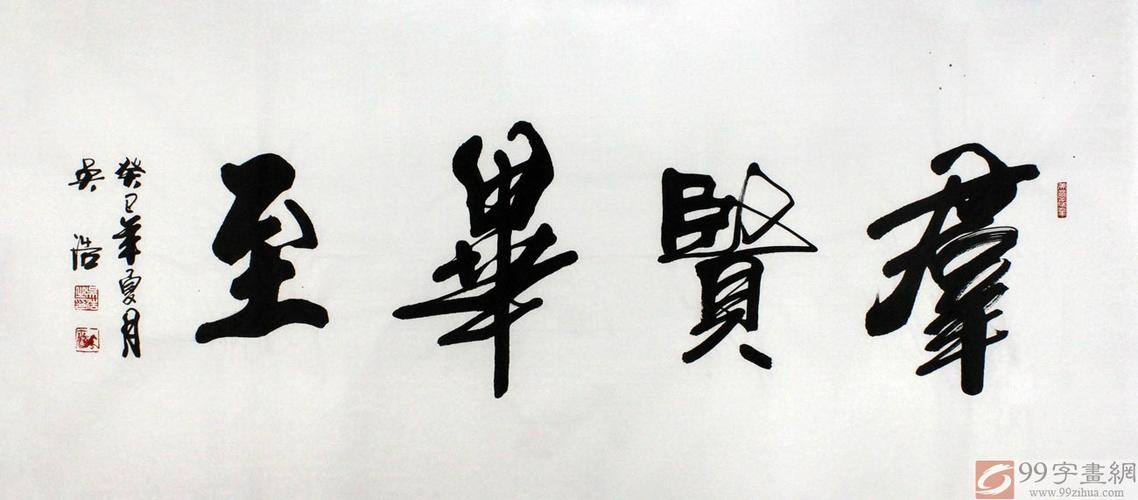 羣賢畢至
癸巳年夏月
吳浩
99字畫網
www.99zihua.com